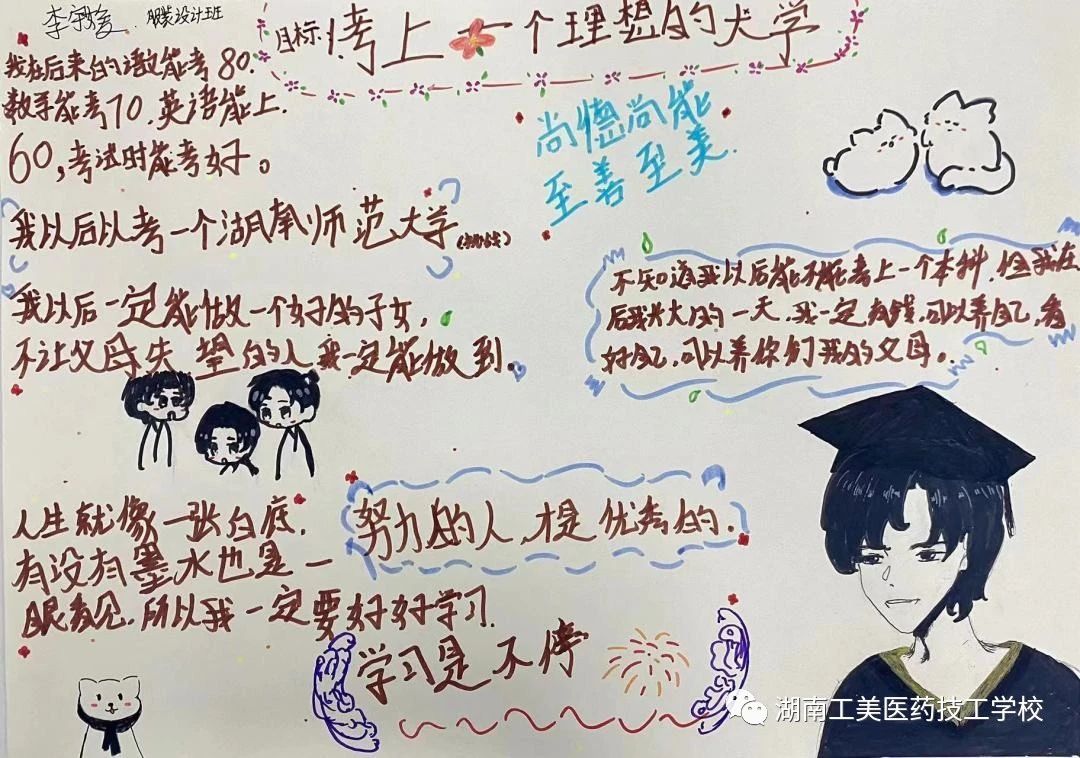 李 服装设计班
目标: 考上一个理想的大学
我在后来的语数能考80.
数学能考70.英语能上.
60,考试时能考好。
尚德尚能
至善至美.
我以后以考一个湖南师范大学
我以后一定能做一个好的子女,
不让父母失望的人我一定能做到。
不知道我以后能不能考上一个本科,但我在
后我长大的一天,我一定有钱,可以养自己,看
好自己,可以养你们我的父母。
人生就像一张白底,
有没有墨水也是一
眼看见,所以我一定要好好学习.
努力的人,才是优秀的.
学习是不停
湖南工美医药技工学校